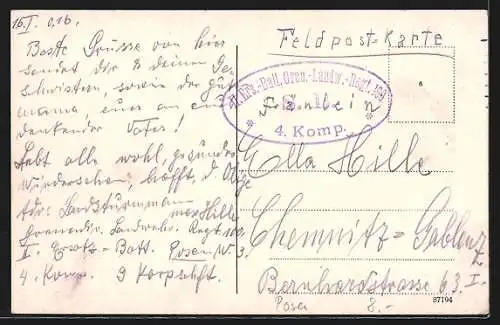 16. I. 016.
Beste Grüsse von hier
sendet dir & deinen Ge-
schwistern, sowie der gut
mama, euer an euch
denkender Vater!
Lebt alle wohl, gesundes
Wiedersehen, hofft, d. Obige
Adr. Landsturmann
max Hille
Grenadir. Landwehr. Regt. 100,
II. Ersatz-Batt. Posen W. 3.
4. Komp. 9 Korpslft.
Feldpost-Karte
Ers.-Batl. Gren.-Landw.-Regt. 100
4. Komp.
Fräulein
Ella Hille
Chemnitz=Gablenz
Bernhardstrasse 63. I.
Posen 8.-
87194